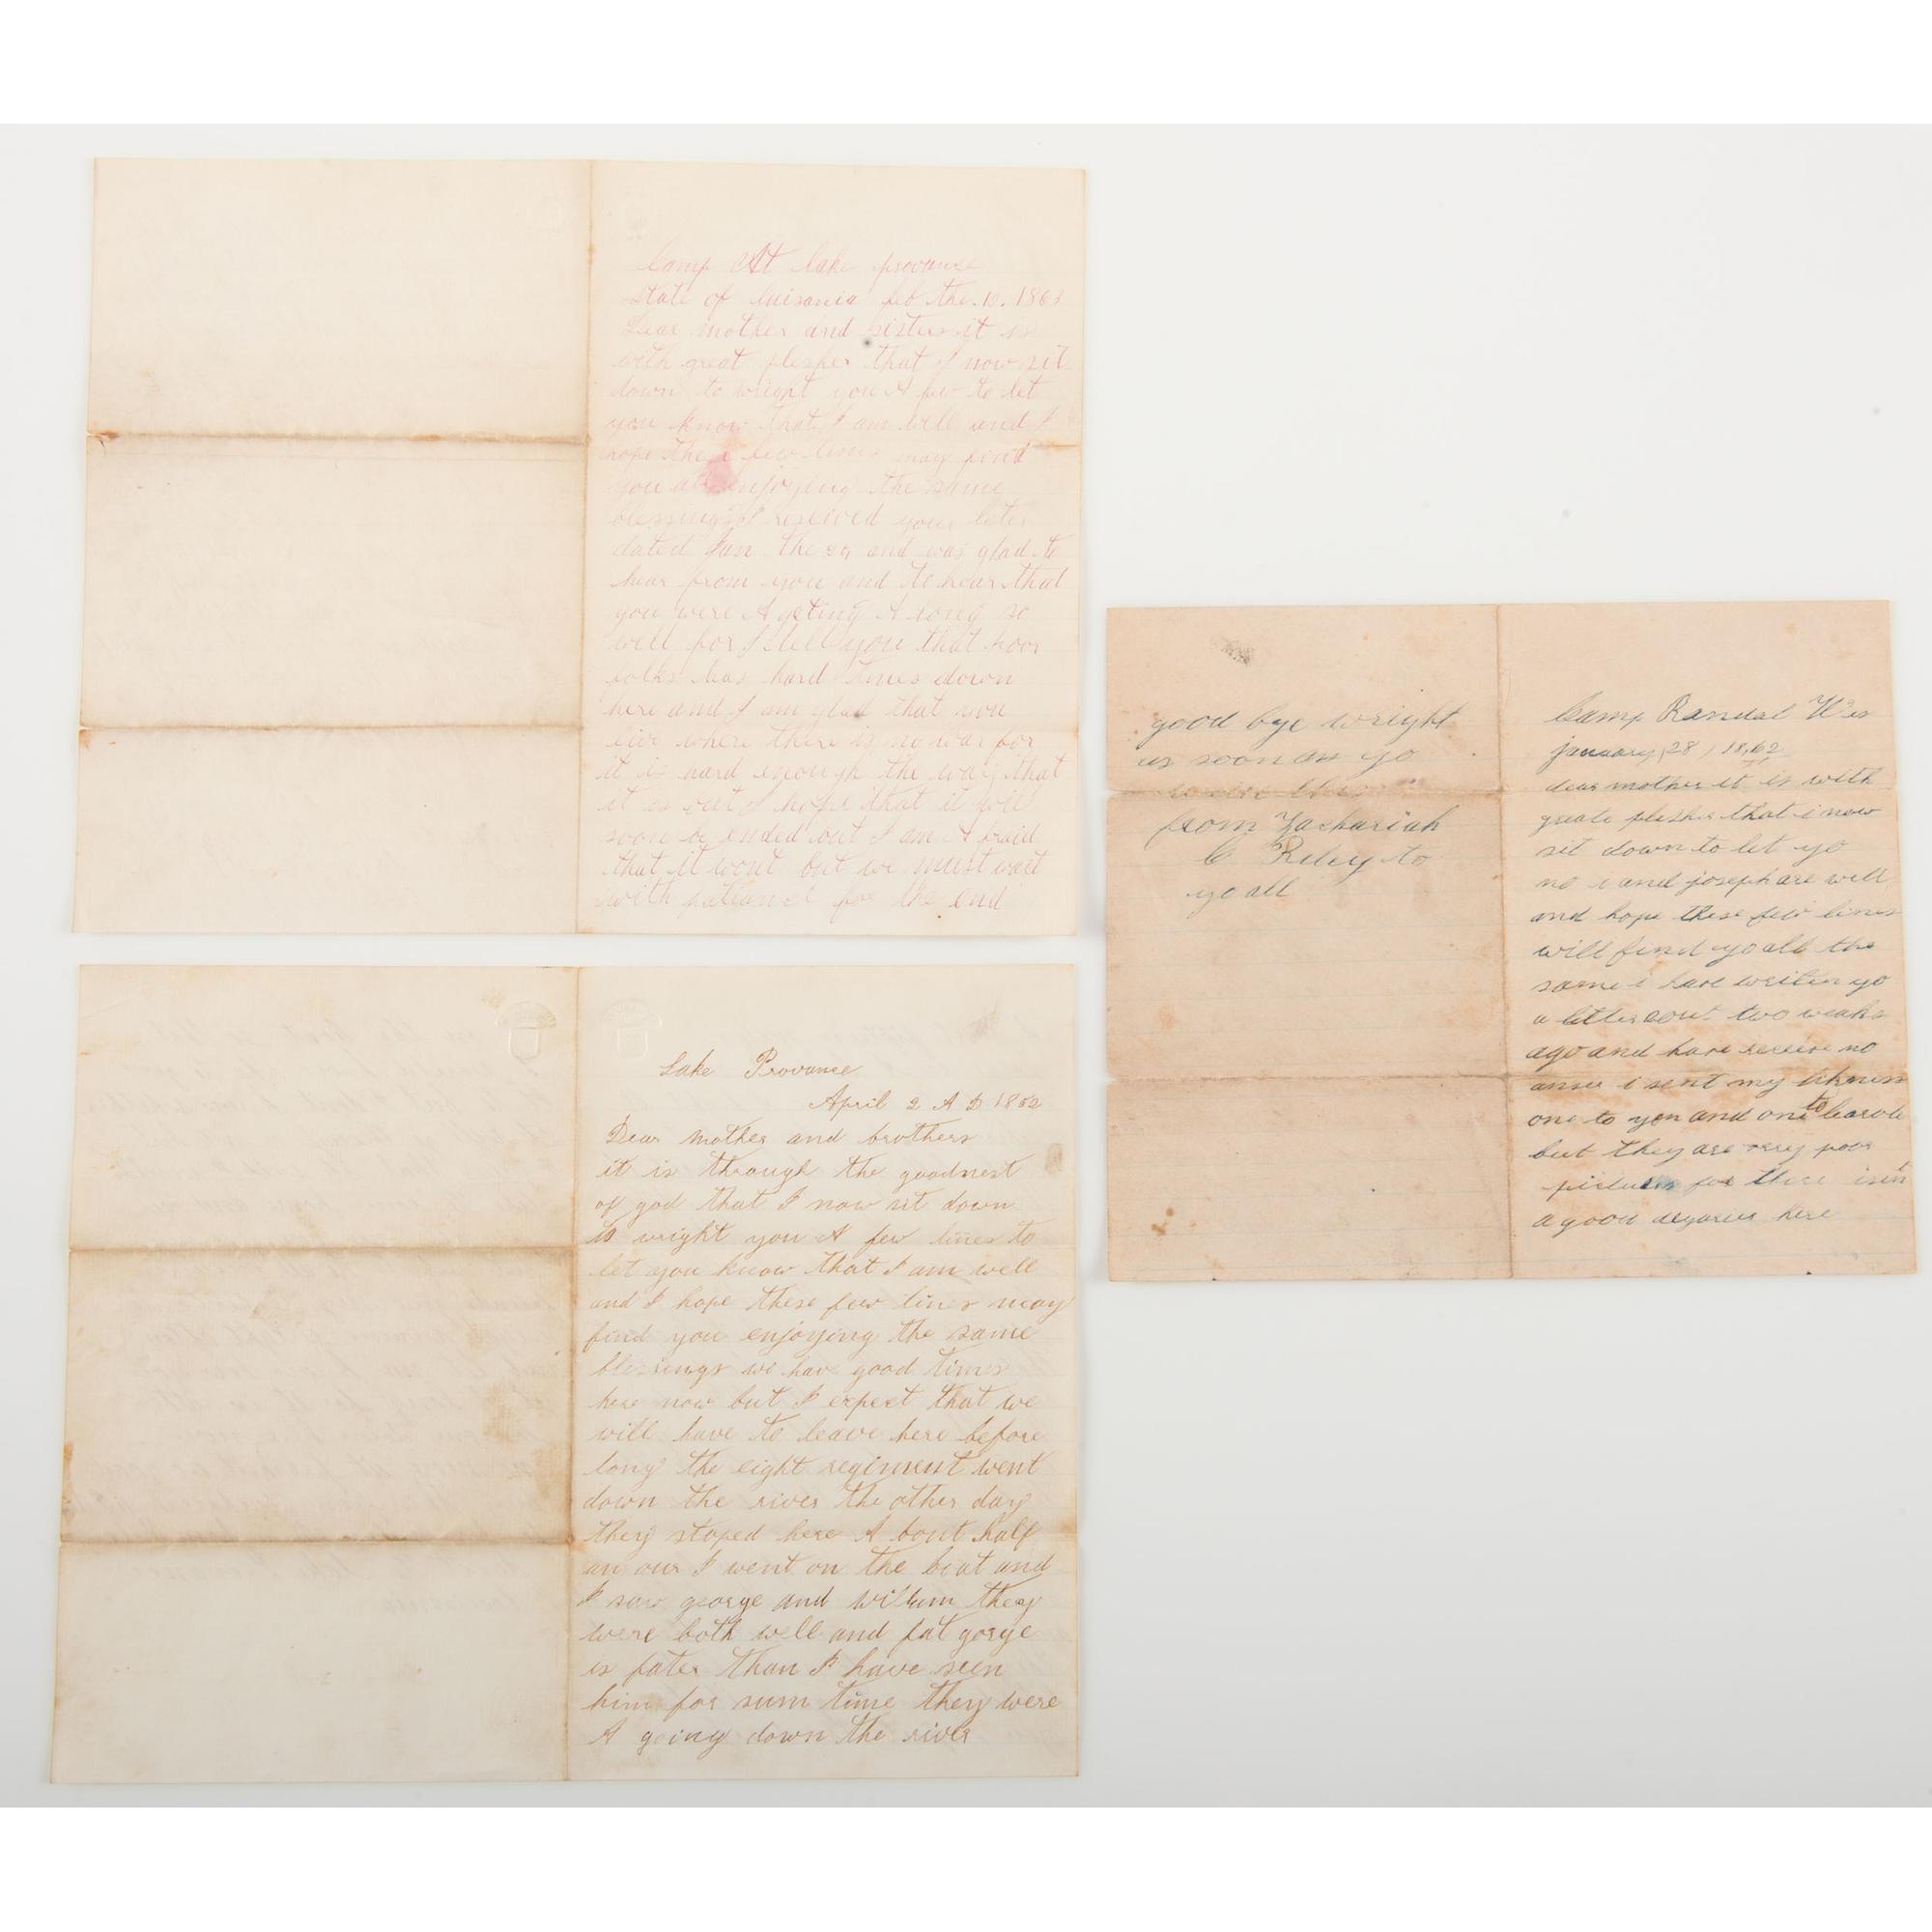 Camp At lake provance
State of luisania feb the. 10. 1863
Dear mother and sister it is
with great plesher that I now sit
down to wright you A few to let
you know that I am well and I
hope these few lines may find
you all enjoying the same
blessings I received your leter
dated Jan the and was glad to
hear from you and to hear that
you were A geting A long so
well for I tell you that poor
folks has hard times down
here and I am glad that you
live where there is no war for
it is hard enough the way that
it is but I hope that it will
soon be ended but I am A fraid
that it wont but we must wait
with pationce for the end
Lake Provance
April 2 A D 1862
Dear mother and brothers
it is through the goodnest
of god that I now sit down
to wright you A few lines to
let you know that I am well
and I hope these few lines may
find you enjoying the same
blessings we hav good times
here now but I expect that we
will have to leave here before
long the eight regiment went
down the river the other day
they stoped here A bout half
an our I went on the boat and
I saw george and wilbum they
were both well and fat gorge
is fater than I have seen
him for sum time they were
A going down the river
good bye wright
as soon as yo
from Zachariah
C Riley to
yo all
Camp Randal Wis
january 28 1862
dear mother it is with
greate plesher that i now
sit down to let yo
no i and joseph are well
and hope these few lines
will find yo all the
same i have writen yo
a letter bout two weaks
ago and have receive no
anser i sent my likness
one to you and one to
but they are very poor
pictures for there isnt
a good degaries here